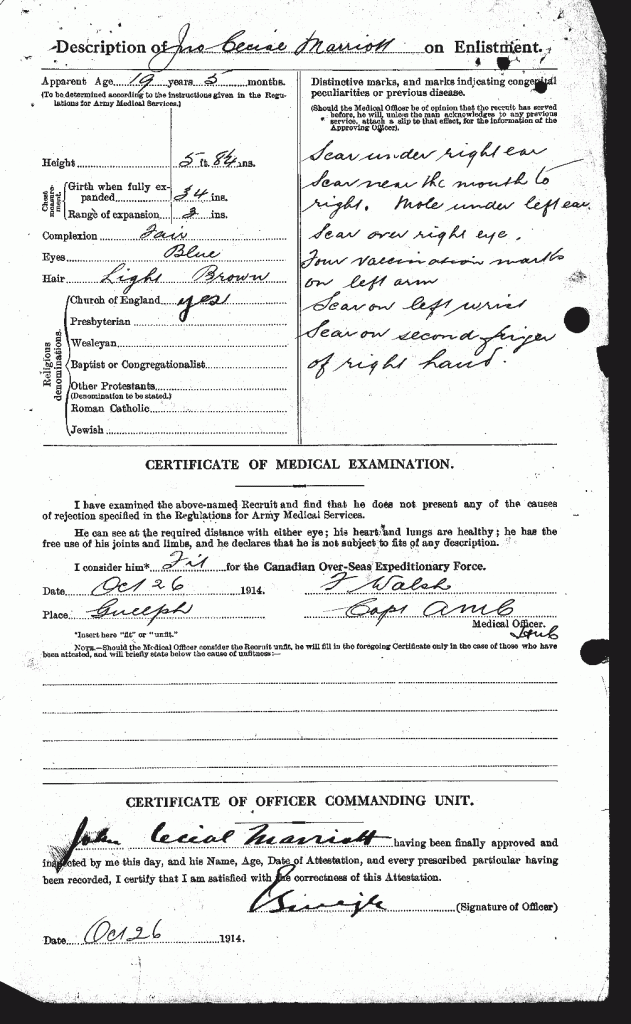 Description of Jno Cecial Marriott on Enlistment.
Apparent Age 19 years 5 months.
(To be determined according to the instructions given in the Regu-
lations for Army Medical Services.)
Height 5 ft. 8¼ ins.
Chest measure-
ment.
Girth when fully ex-
panded 34 ins.
Range of expansion 3 ins.
Complexion Fair
Eyes Blue
Hair Light Brown
Religious
denominations.
Church of England yes
Presbyterian
Wesleyan
Baptist or Congregationalist
Other Protestants
(Denomination to be stated.)
Roman Catholic
Jewish
Distinctive marks, and marks indicating congenital
peculiarities or previous disease.
(Should the Medical Officer be of opinion that the recruit has served
before, he will, unless the man acknowledges to any previous
service, attach a slip to that effect, for the information of the
Approving Officer).
Scar under right ear
Scar near the mouth to
right. Mole under left ear.
Scar over right eye.
Four vaccination marks
on left arm
Scar on left wrist
Scar on second finger
of right hand
CERTIFICATE OF MEDICAL EXAMINATION.
I have examined the above-named Recruit and find that he does not present any of the causes
of rejection specified in the Regulations for Army Medical Services.
He can see at the required distance with either eye; his heart and lungs are healthy; he has the
free use of his joints and limbs, and he declares that he is not subject to fits of any description.
I consider him* Fit for the Canadian Over-Seas Expeditionary Force.
Date Oct 26 1914. F Walsh
Place Guelph Capt AMC
Medical Officer.
*Insert here "fit" or "unfit."
NOTE.—Should the Medical Officer consider the Recruit unfit, he will fill in the foregoing Certificate only in the case of those who have
been attested, and will briefly state below the cause of unfitness:—
CERTIFICATE OF OFFICER COMMANDING UNIT.
John Cecial Marriott having been finally approved and
inspected by me this day, and his Name, Age, Date of Attestation, and every prescribed particular having
been recorded, I certify that I am satisfied with the correctness of this Attestation.
(Signature of Officer)
Date Oct 26 1914.